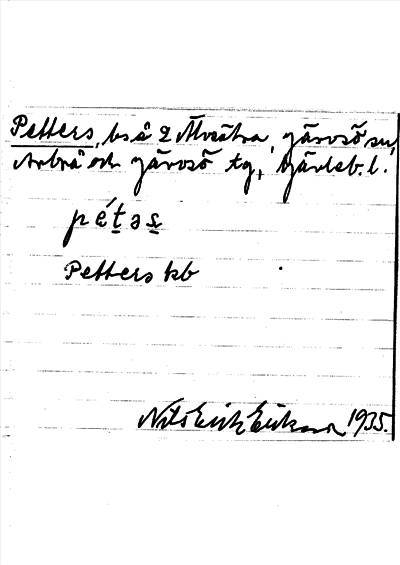 Petters, bs å 2 järvsö sn,
Arbrå och järvsö tg, Gävleb. l.
pét̲əs̲
Petters kb
Nils Erik Erikson 1935.